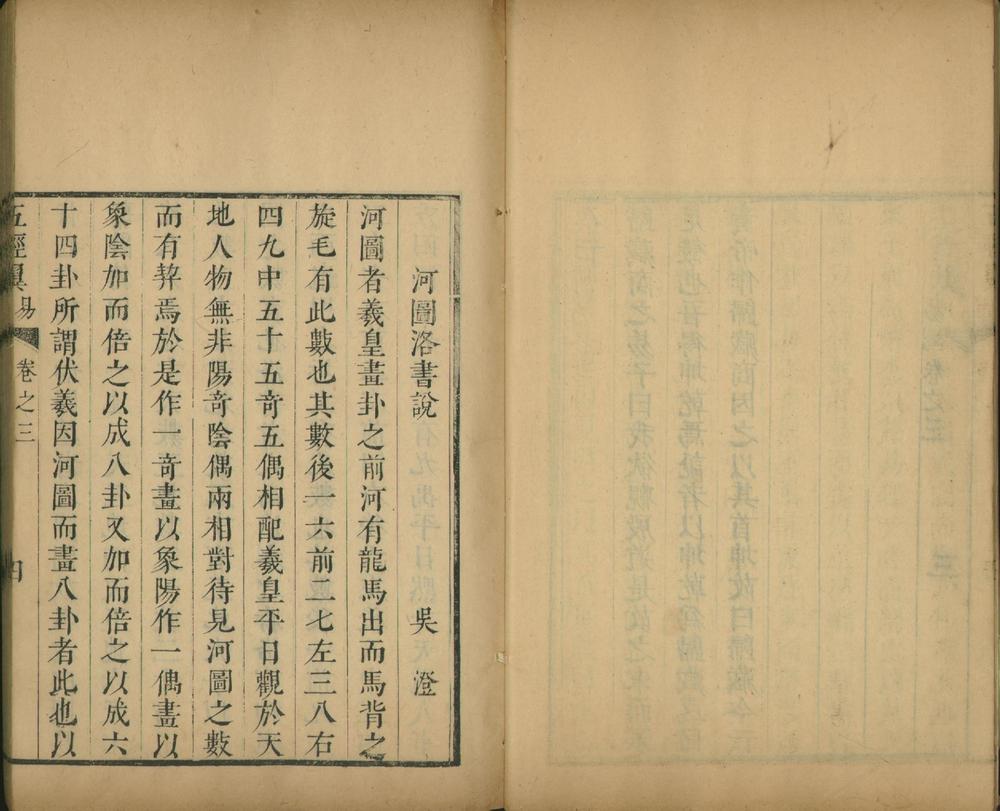 河圖洛書說 吳澄
河圖者羲皇畫卦之前河有龍馬出而馬背之
旋毛有此數也其數後一六前二七左三八右
四九中五十五奇五偶相配羲皇平日觀於天
地人物無非陽奇陰偶兩相對待見河圖之數
而有契焉於是作一奇畫以象陽作一偶畫以
象陰加而倍之以成八卦又加而倍之以成六
十四卦所謂伏羲因河圖而畫八卦者此也以
五經翼易 卷之三 四